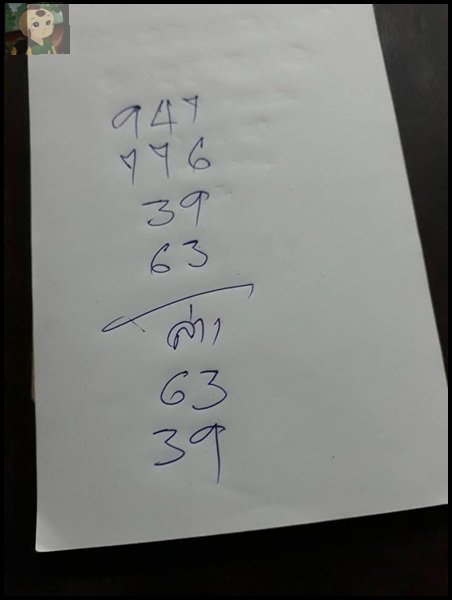 947
776
39
63
ล่าง
63
39